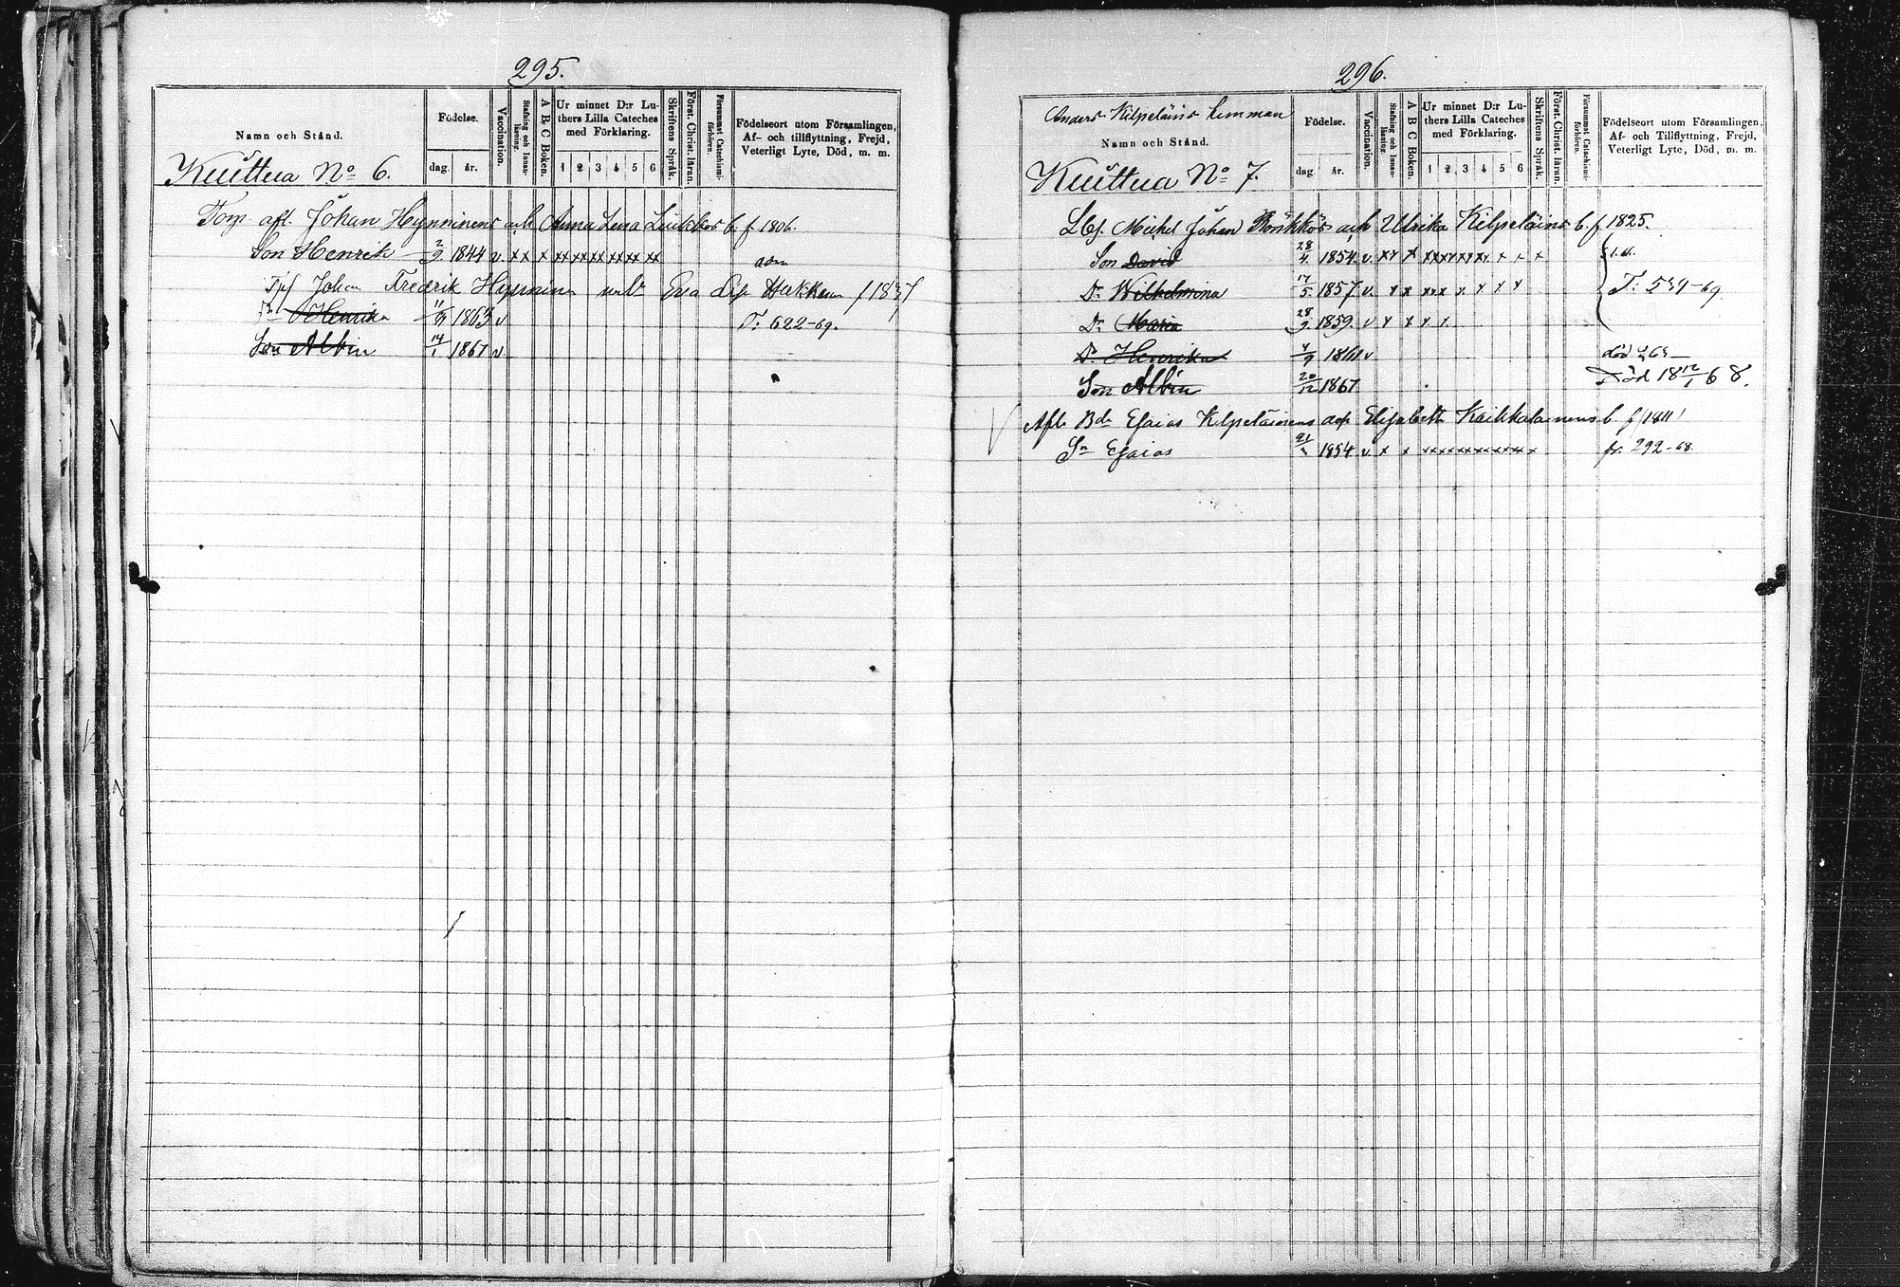 295.
Namn och Stånd.
Födelse.
dag. år.
Vaccination.
Stafning och Innanläsning.
A B C Boken.
Ur minnet D:r Luthers Lilla Cateches med Förklaring.
1 2 3 4 5 6
Skriftens Språk.
Först. Christ. läran.
Försummat Catechismiförhören.
Födelseort utom Församlingen,
Af- och tillflyttning, Frejd,
Veterligt Lyte, Död, m. m.
Kuittua No 6.
Torp. afl. Johan Hynninens och Anna Lena b. f 1806.
Son Henrik 2/9 1844 v. x x x xx xx xx xx xx xx
Johan Fredrik Hynninen Eva f 1837
Henrika 1863 v T: 622-69.
Son Albin 14/1 1867 v
296.
Anders Kilpeläins hemman
Namn och Stånd.
Födelse.
dag. år.
Vaccination.
Stafning och Innanläsning.
A B C Boken.
Ur minnet D:r Luthers Lilla Cateches med Förklaring.
1 2 3 4 5 6
Skriftens Språk.
Först. Christ. läran.
Försummat Catechismiförhören.
Födelseort utom Församlingen,
Af- och Tillflyttning, Frejd,
Veterligt Lyte, Död, m. m.
Kuittua No 7.
Michel Johan Rönkkös och Ulrika Kilpeläins b. f 1825.
Son David 28/4 1854 v. x x x xx xx xx xx x x x
Dr Wilhelmina 17/5 1857 v. x x xx x x x x x T: 539-69
Dr Maria 28/9 1859. v x x x x
Dr Henrika 4/9 1861 v död
Son Albin 20/12 1867 Död 18 12/1 68.
Afl. Bd. Esaias Kilpeläinens och Elisabeth Kaikkalainens b. f 1811
Sn Esaias 1854 v. x x xx xx xx xx xx xx x fr. 292-68